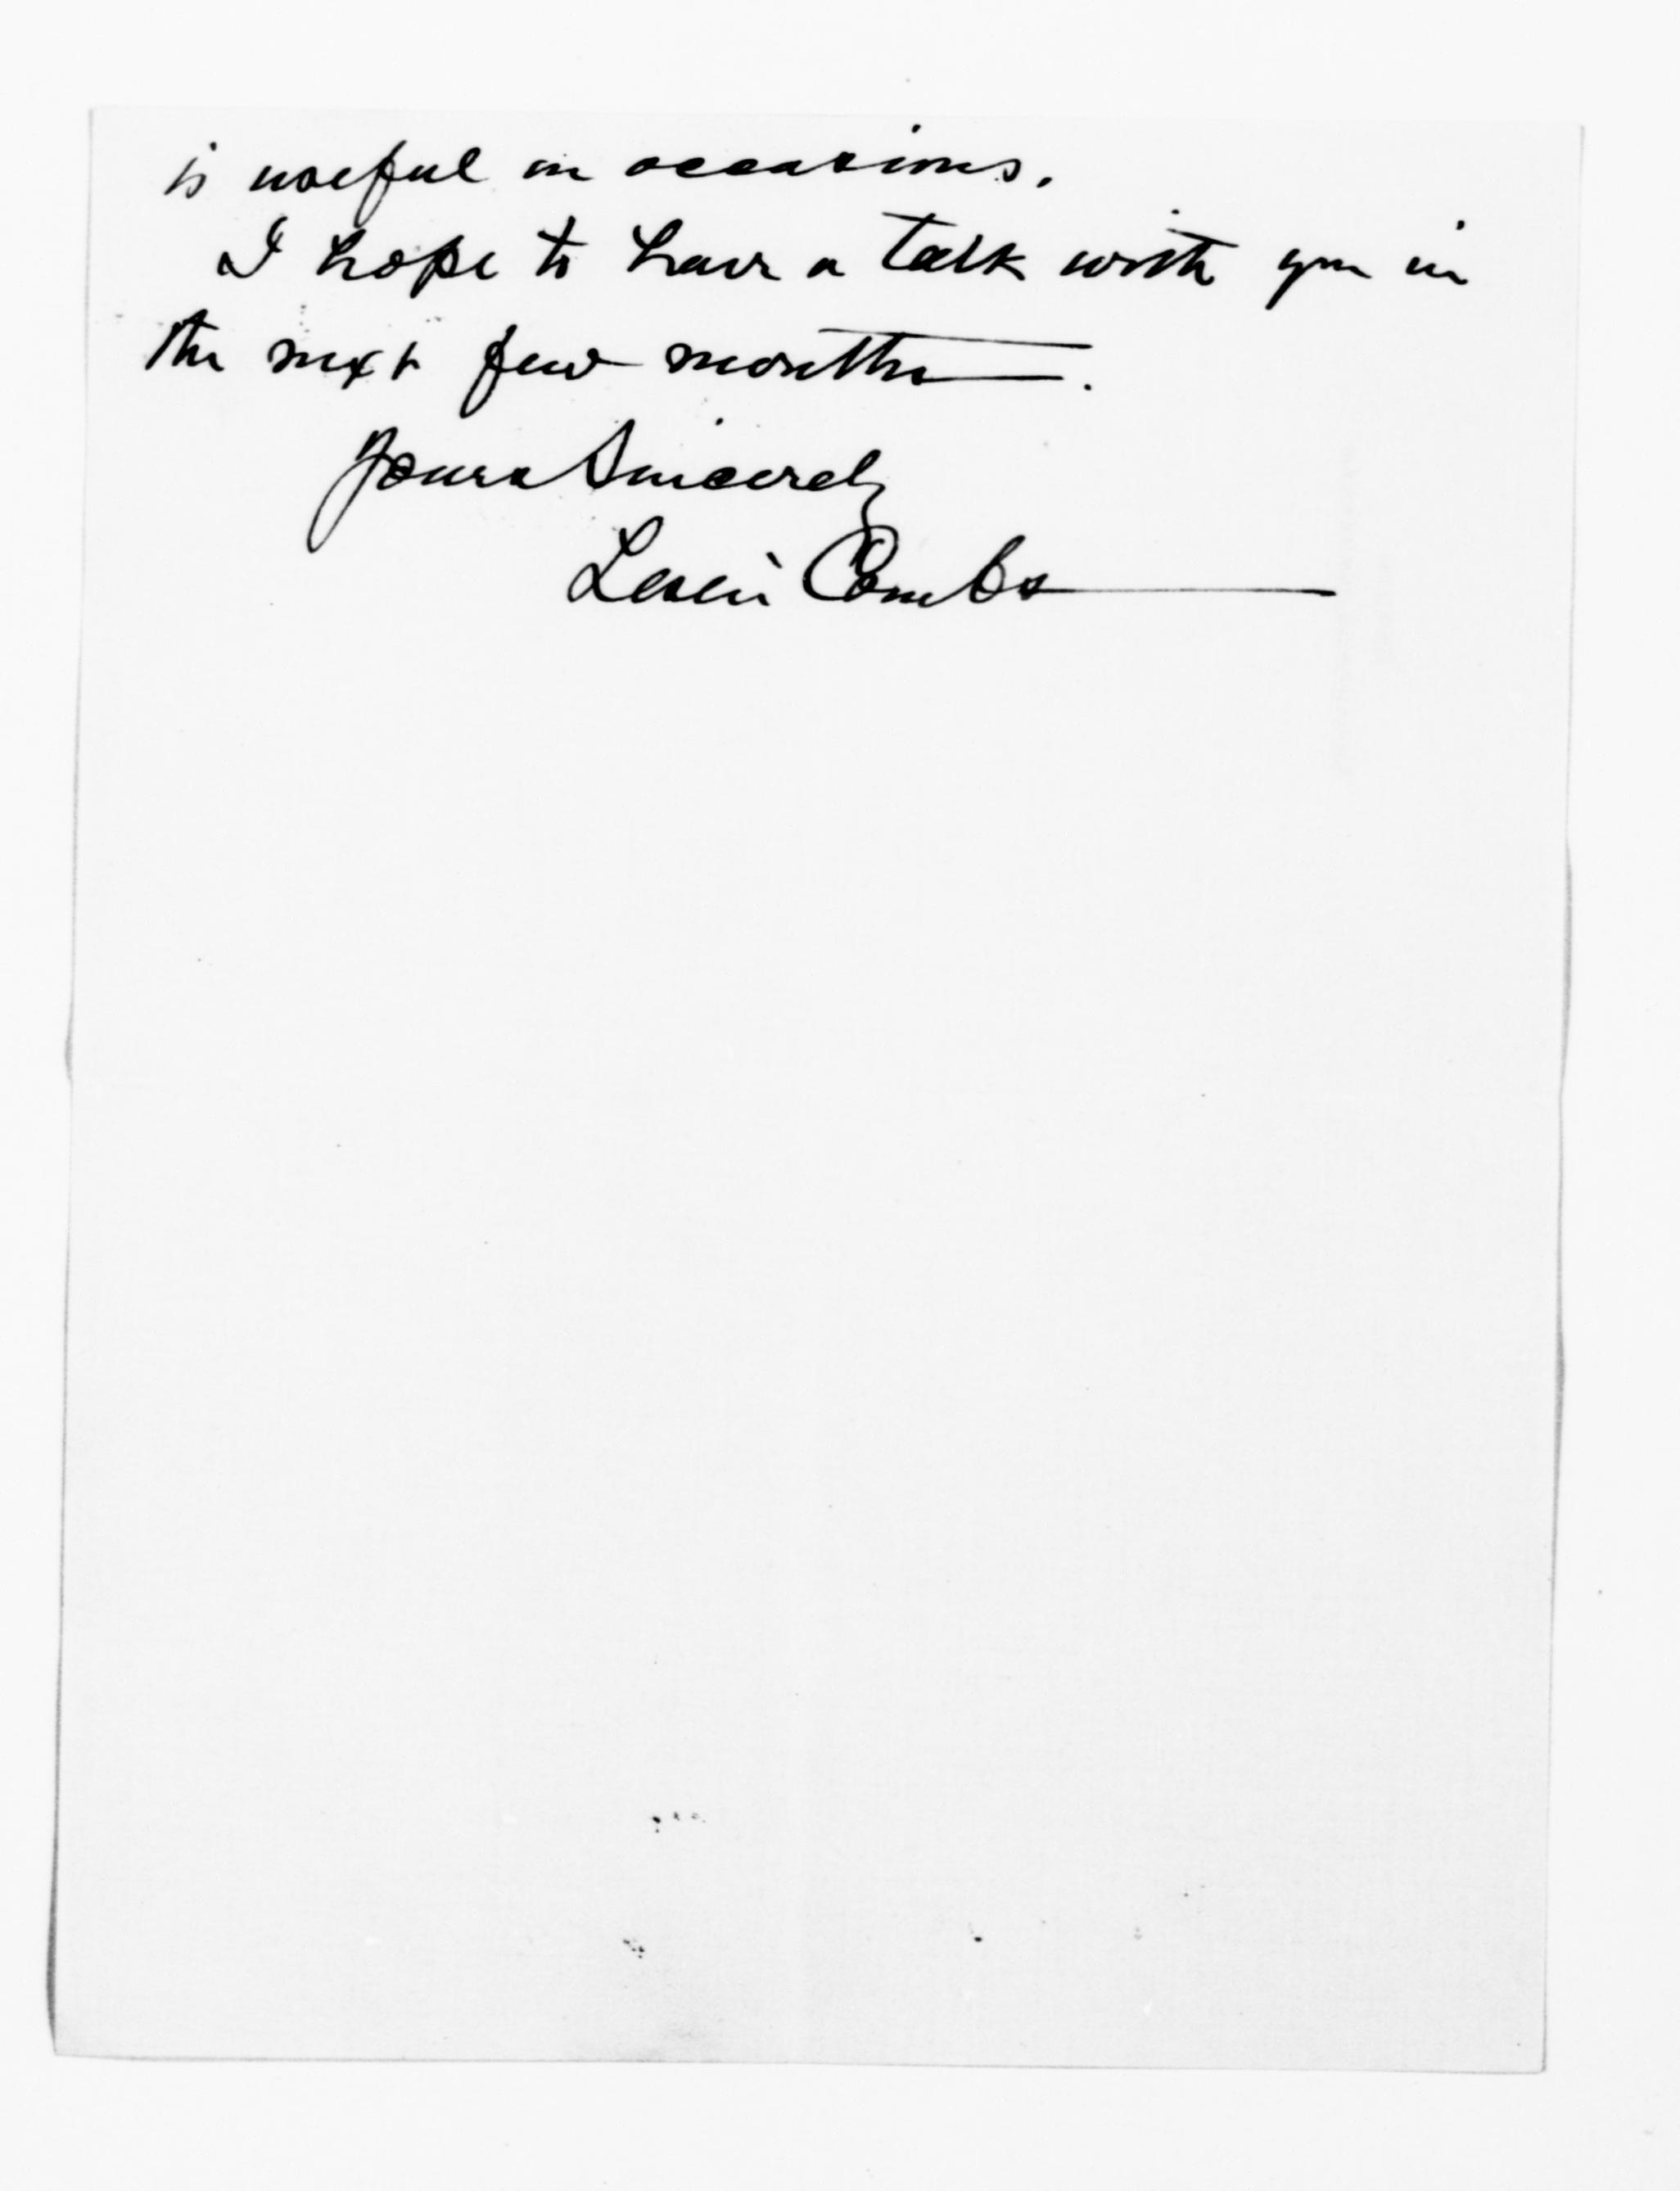 is useful on occasions.
I hope to have a talk with you in
the next few months.
Yours Sincerely
Leslie Combs